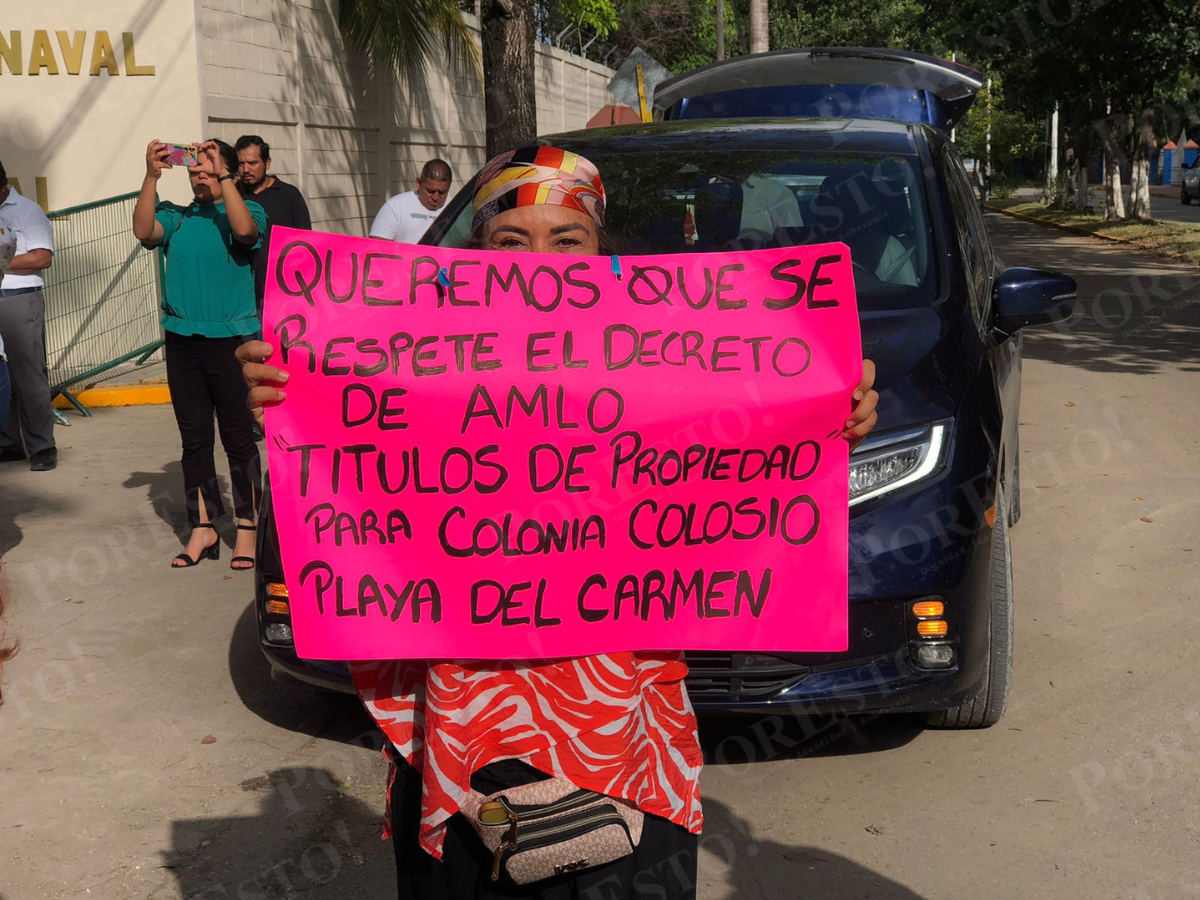 NAVAL
QUEREMOS QUE SE
RESPETE EL DECRETO
DE AMLO
"TITULOS DE PROPIEDAD"
PARA COLONIA COLOSIO
PLAYA DEL CARMEN
PORESTO!